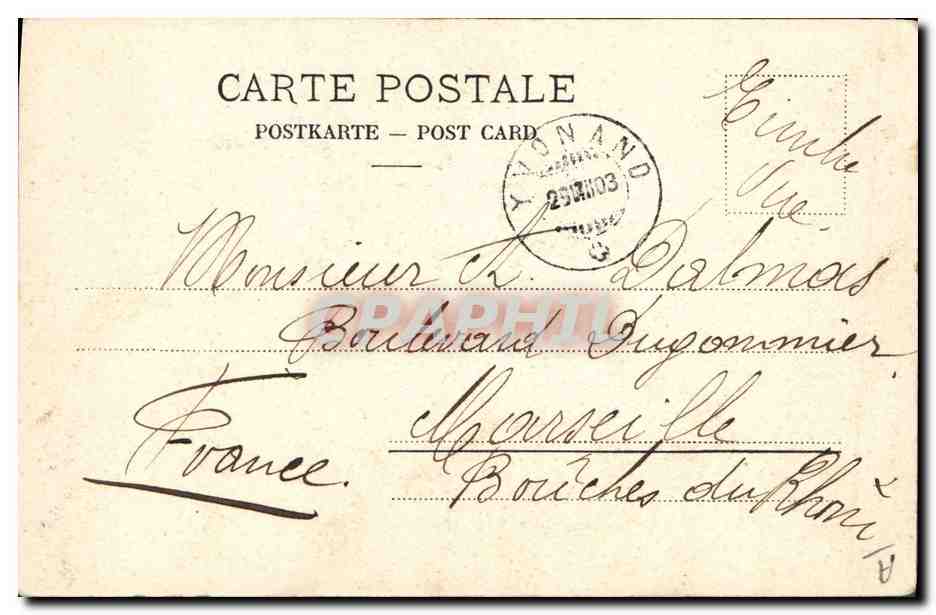 CARTE POSTALE
POSTKARTE — POST CARD
YVONAND
Timbre
Vue.
Monsieur A. Dalmas
CPAPHIL
Boulevard Dugommier
Marseille
France.
Bouches du Rhône
A